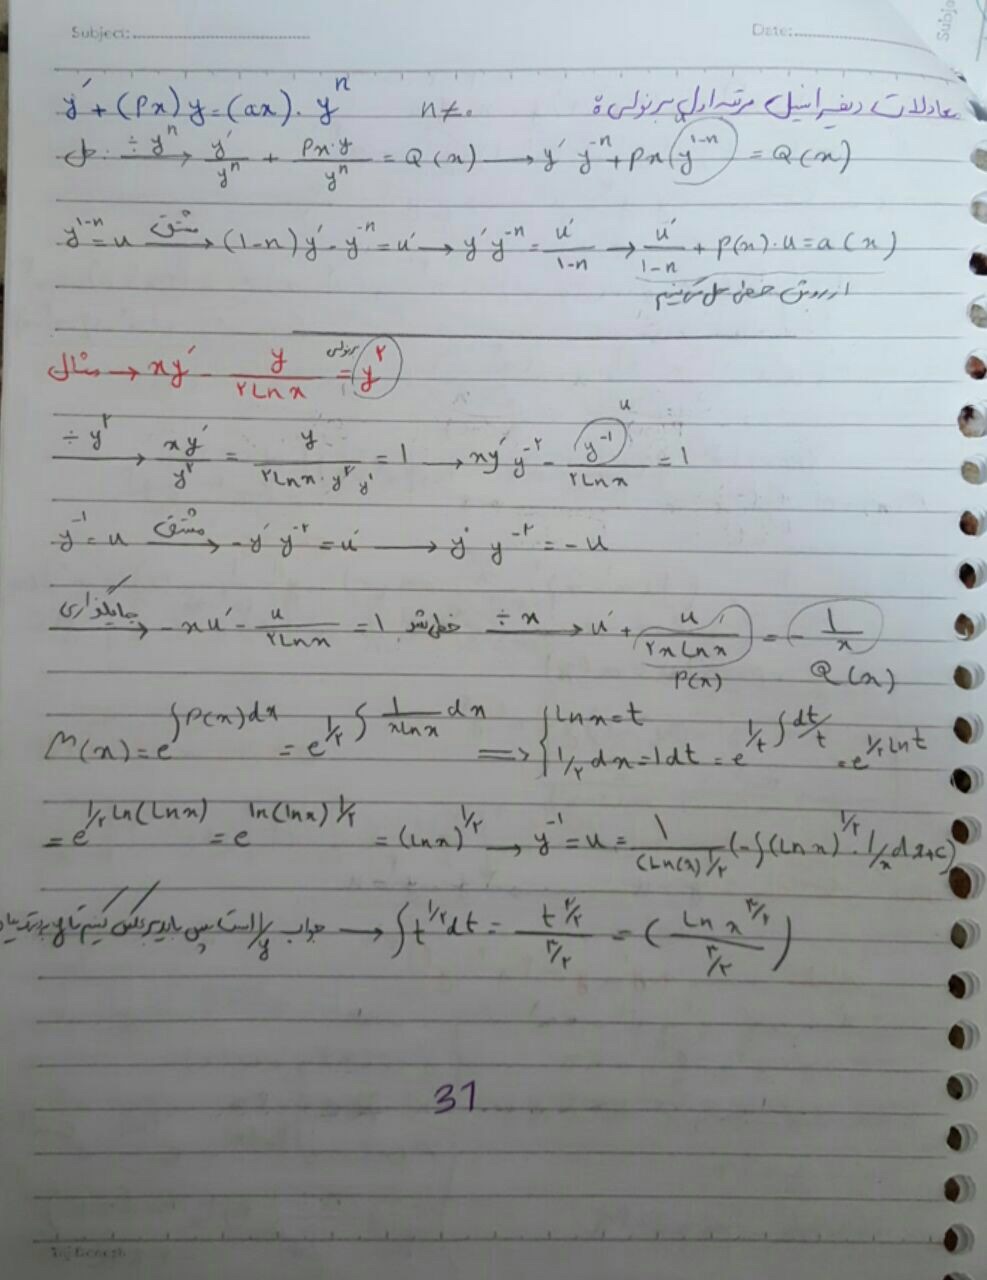 Subject: Date:
y′ + (Px) y = (ax) · yⁿ n ≠ ۰ معادلات دیفرانسیل مرتبه اول برنولی ة
حل: ÷ yⁿ → y′/yⁿ + Px·y/yⁿ = Q(x) → y′ y⁻ⁿ + Px (y¹⁻ⁿ) = Q(x)
y¹⁻ⁿ = u مشتق → (1-n) y′ - y⁻ⁿ = u′ → y′ y⁻ⁿ = u′/1-n → u′/1-n + P(x)·u = a(x)
از روش خطی حل می‌کنیم
مثال → xy′ - y/۲Lnx = y² برنولی
÷ y² → xy′/y² = y/۲Lnx·y² y′ = 1 → xy′ y⁻² - y⁻¹/۲Lnx = 1 u
y⁻¹ = u مشتق → -y′ y⁻² = u′ → y′ y⁻² = -u
جایگذاری → -xu′ - u/۲Lnx = 1 خطی شد ÷ x → u′ + u/۲xLnx = - 1/x
P(x) Q(x)
M(x) = e^∫P(x)dx = e^½∫ 1/xlnx dx ⇒ { Lnx = t
1/۲ dx = 1dt = e^1/t ∫dt/t = e^½ Ln t
= e^½ Ln(Lnx) = e^ln(lnx)½ = (Lnx)^½ → y⁻¹ = u = 1/(Ln(x)½ (-∫(Lnx)^½ · 1/x dx+c)
جواب 1/y است پس باید برعکس کنیم تا y بدست بیاد → ∫t^½ dt = t^۳/۲ / ۳/۲ = (Ln x^۳/۲ / ۳/۲)
31